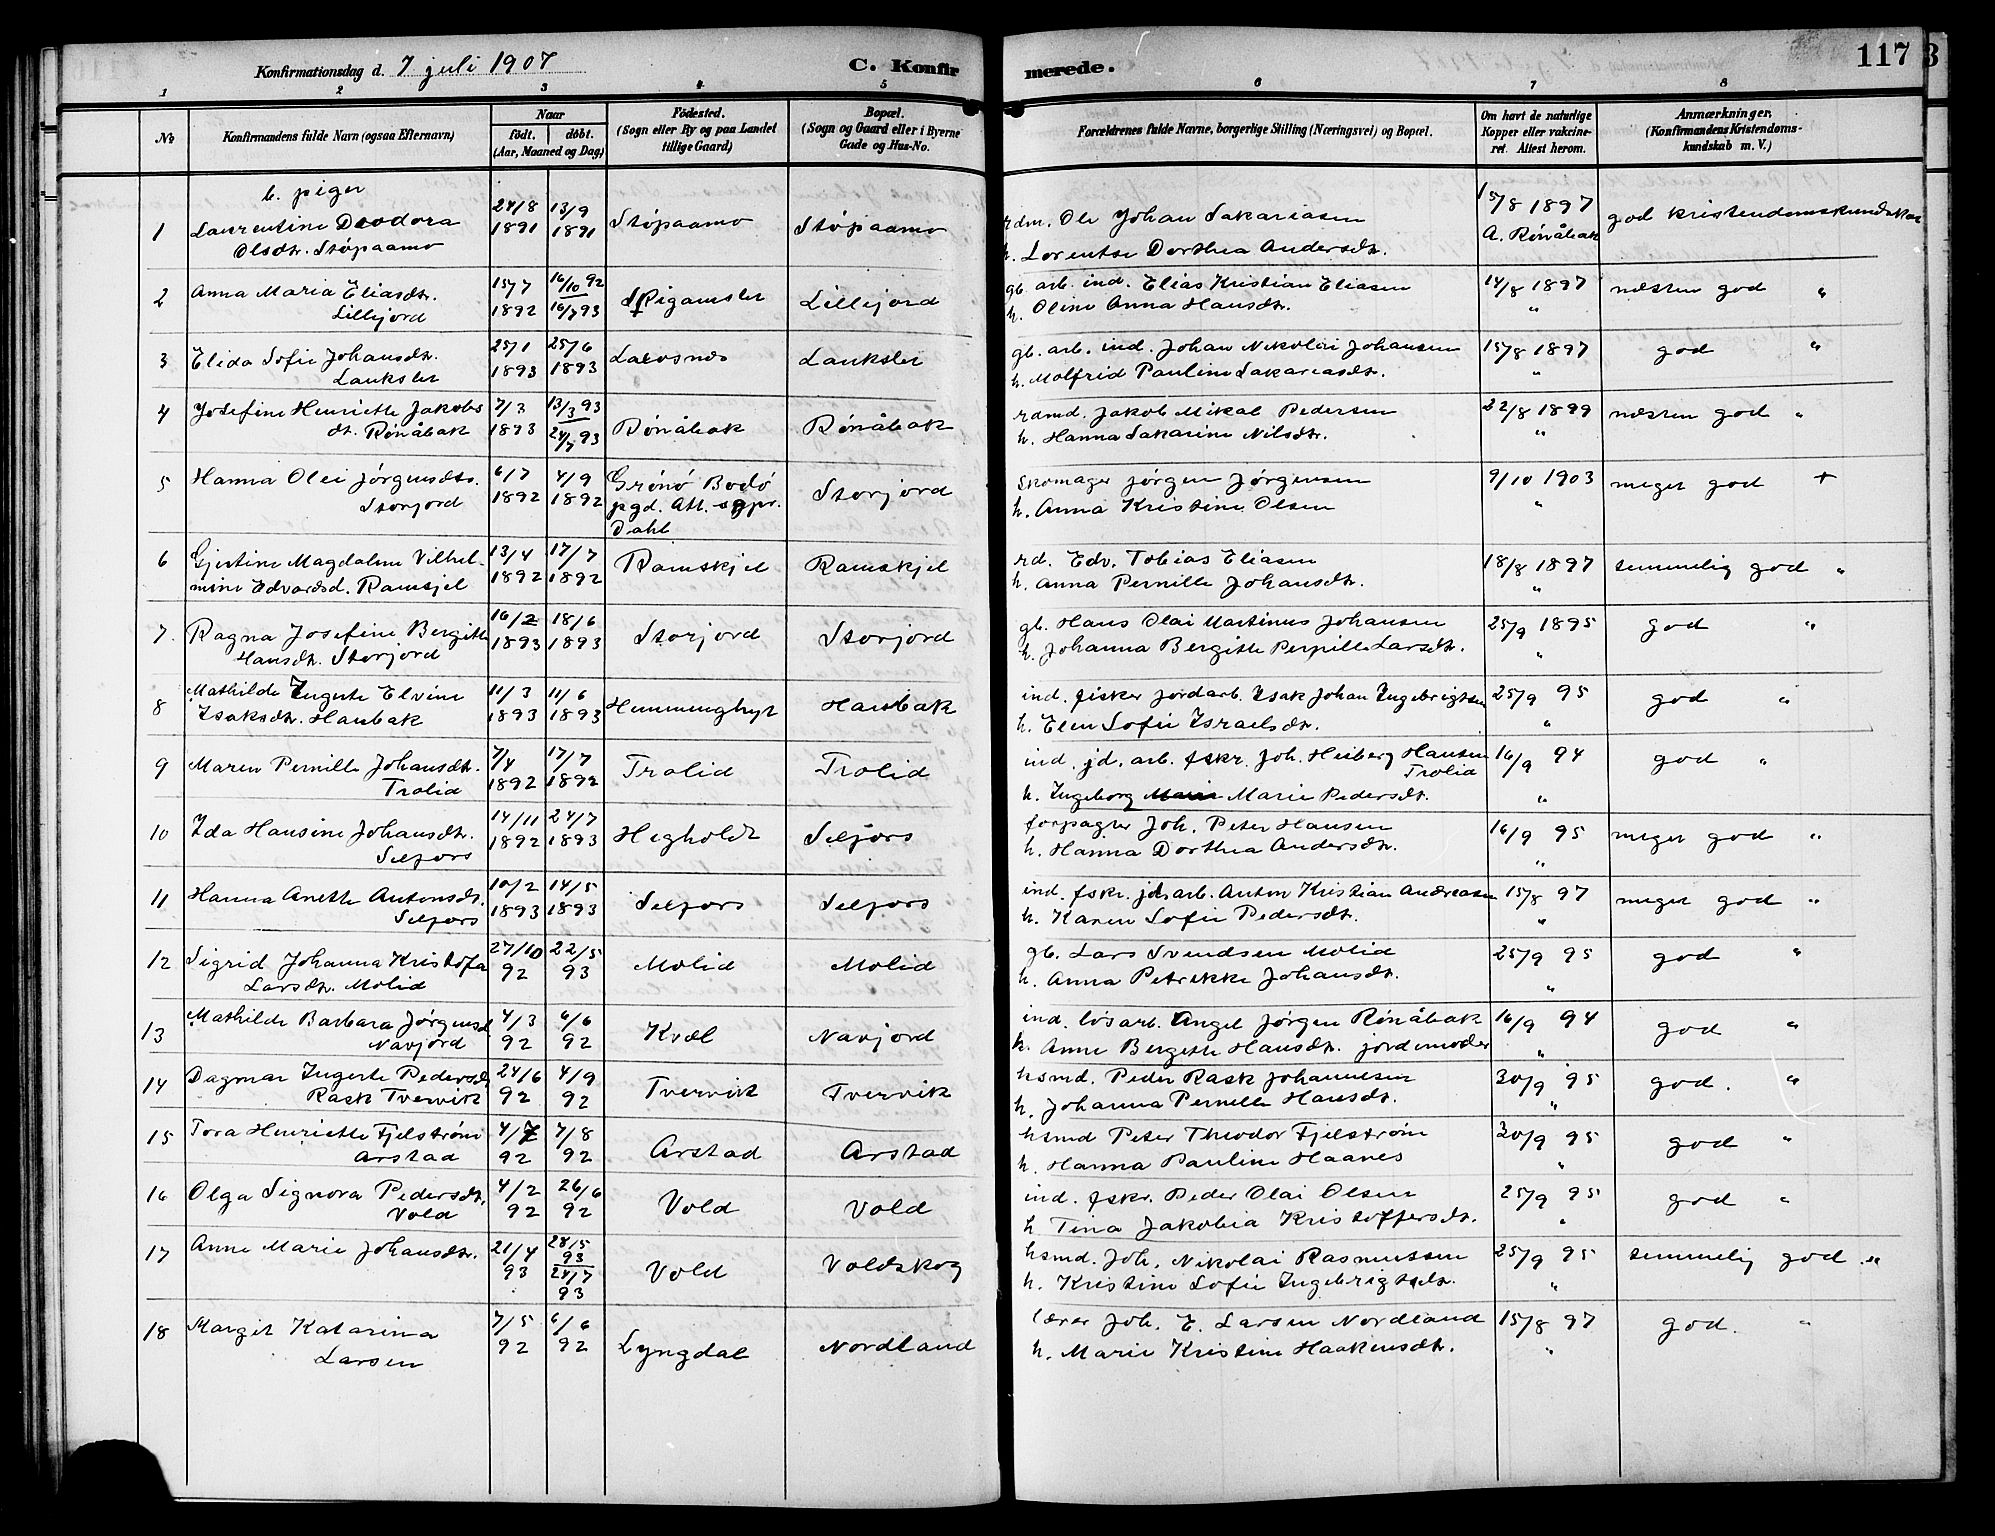 Konfirmationsdag d. 7 juli 1907
C. Konfirmerede.
117
3
1 2 3 4 5 6 7 8
№
Konfirmandens fulde Navn (ogsaa Efternavn)
Naar
født. døbt.
(Aar, Maaned og Dag)
Fødested.
(Sogn eller By og paa Landet
tillige Gaard)
Bopæl.
(Sogn og Gaard eller i Byerne
Gade og Hus-No.
Forældrenes fulde Navne, borgerlige Stilling (Næringsvei) og Bopæl.
Om havt de naturlige
Kopper eller vakcine-
ret. Attest herom.
Anmærkninger.
(Konfirmandens Kristendoms-
kundskab m. V.)
b. piger
1 Laurentine Deodora 24/8 13/9 Støpaamo Støpaamo rdm. Ole Johan Sakariasen 15/8 1897 god kristendomskundskab
Olsdtr. Støpaamo 1891 1891 h. Lorentse Dorthea Andersdtr. A. Rønåbak
2 Anna Maria Eliasdtr. 15/7 16/10 92 Lillejord gb. arb. ind. Elias Kristian Eliasen 14/8 1897 næsten god "
Lillejord 1892 16/7 93 h. Oline Anna Hansdtr. "
3 Elida Sofie Johansdtr. 25/1 25/6 Laxosnes Lauksler gb. arb. ind. Johan Nikolai Johansen 15/8 1897 god "
Lauksler 1893 1893 h. Molfrid Pauline Sakariasdtr. "
4 Josefine Henriette Jakobs 7/3 13/3 93 Rønåbak Rønåbak rdmd. Jakob Mikal Pedersen 22/8 1899 næsten god "
dtr. Rønåbak 1893 24/7 93 h. Hanna Sakarine Nilsdtr. "
5 Hanna Olei Jørgensdtr. 6/7 4/9 Grønø Bodø Storjord Skomager Jørgen Jørgensen 9/10 1903 meget god +
Storjord 1892 1892 pgd. Att. sgpr. h. Anna Kristine Olsen "
Dahl
6 Gjertine Magdalene Vilhel- 13/4 17/7 Ramskjel Ramskjel rd. Edv. Tobias Eliasen 18/8 1897 temmelig god "
mine Edvardsd. Ramsjel 1892 1892 h. Anna Pernille Johansdtr. "
7. Ragna Josefine Bergitte 16/2 18/6 Storjord Storjord gb. Hans Olai Martinus Johansen 25/9 1895 god "
Hansdtr. Storjord 1893 1893 h. Johanna Bergitte Pernille Larsdtr. "
8 Mathilde Ingerte Elvine 11/3 11/6 Hemminghyt Haubak ind. fisker jordarb. Isak Johan Ingebrigtsen 25/9 95 god "
Isaksdtr. Haubak 1893 1893 h. Elen Sofie Israelsdtr. "
9 Maren Pernille Johansdtr. 7/4 17/7 Trolid Trolid ind. jd. arb. fskr. Joh. Heiberg Hansen 16/9 94 god "
Trolid 1892 1892 Trolid
h. Ingeborg Marie Pedersdtr. "
10 Ida Hansine Johansdtr. 14/11 24/7 Hegholdt Selfors forpagter Joh. Peter Hansen 16/9 95 meget god "
Selfors 1892 1893 h. Hanna Dorthea Andersdtr. "
11 Hanna Anette Antonsdtr. 10/2 14/5 Selfors Selfors ind. fskr. jdsarb. Anton Kristian Andreasen 15/8 97 meget god "
Selfors 1893 1893 h. Karen Sofie Pedersdtr. "
12 Sigrid Johanna Kristofa 27/10 22/5 Molid Molid gb. Lars Svendsen Molid 25/9 95 god "
Larsdtr. Molid 92 93 h. Anna Petrikke Johansdtr. "
13 Mathilde Barbara Jørgensd 4/3 6/6 Kvæl Navjord ind. løsarb. Angel Jørgen Rønåbak 16/9 94 god "
Navjord 92 92 h. Anne Bergette Hansdtr. jordemoder "
14 Dagmar Ingerte Pedersd 24/6 4/9 Tvervik Tvervik hsmd. Peder Rask Johannesen 30/9 95 god. "
Rask Tvervik 92 92 h. Johanna Pernille Hansdtr. "
15 Tora Henriette Fjelstrøm 4/7 7/8 Arstad Arstad hsmd Peter Theodor Fjelstrøm 30/9 95 god "
Arstad 92 92 h. Hanna Pauline Haanes "
16 Olga Signora Pedersdtr. 4/2 26/6 Vold Vold ind. fskr. Peder Olai Olsen 25/9 95 god "
Vold 92 92 h Tina Jakobia Kristoffersdtr. "
17 Anne Marie Johansdtr. 21/4 28/5 93 Vold Voldskog hsmd. Joh. Nikolai Rasmussen 25/9 95 temmelig god. "
93 24/7 93 h. Kristine Sofie Ingebrigtsdtr. "
18 Margit Katarina 7/5 6/6 Lyngdal Nordland lærer Joh. E. Larsen Nordland 15/8 97 god. "
Larsen 92 92 h. Marie Kristine Haakensdtr. "